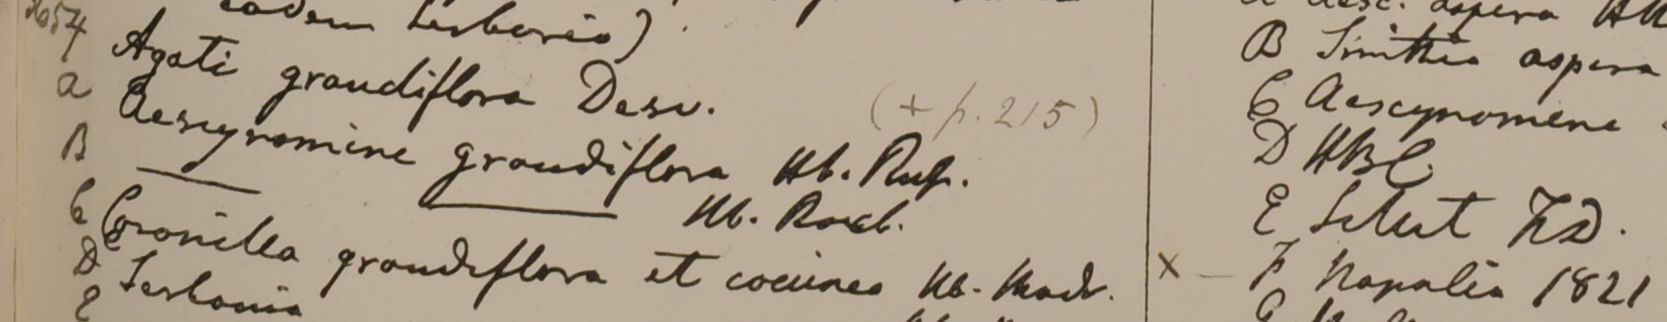 eodem herbario)
5657 Agati grandiflora Desv.
(+ p. 215)
a Aescynomene grandiflora Hb. Rus.
B ____ ____ Hb. Roxb.
C Coronilla grandiflora et coccinea Hb. Madr.
D Sesbania
E
aspera
B Smithia aspera
C Aescynomene
D HBC.
E Silhet F.D.
x — F Napalia 1821
G